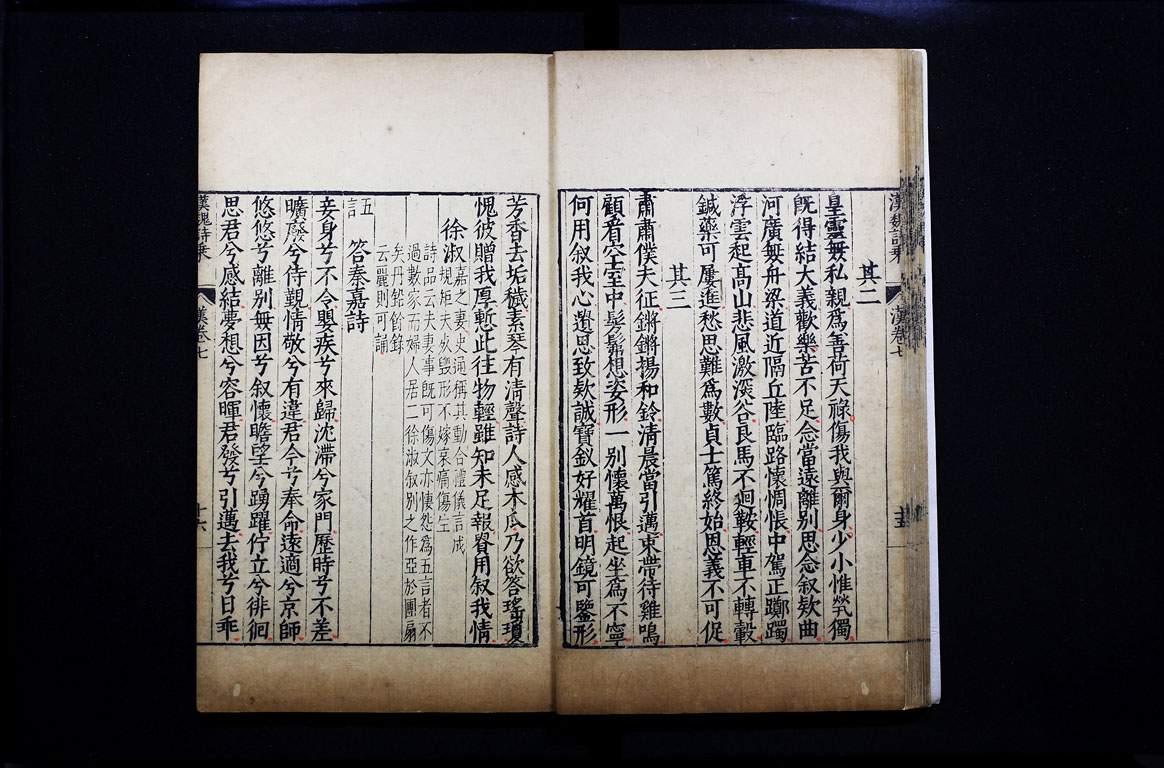 漢魏詩乗
漢卷七
十五
其二
皇靈無私親爲善荷天祿傷我與爾身少小惟煢獨
既得結大義歡樂苦不足念當遠離別思念叙欵曲
河廣無舟梁道近隔丘陸臨路懷惆悵中駕正躑躅
浮雲起高山悲風激深谷良馬不迴鞍輕車不轉轂
鍼藥可屢進愁思難爲數貞士篤終始恩義不可促
其三
肅肅僕夫征鏘鏘揚和鈴清晨當引邁束帶待雞鳴
顧看空室中髣髴想姿形一別懷萬恨起坐爲不寧
何用叙我心遺思致欵誠寶釵好耀首明鏡可鑒形
芳香去垢穢素琴有清聲詩人感木瓜乃欲答瑤瓊
愧彼贈我厚慙此往物輕雖知未足報貴用叙我情
徐淑
嘉之妻史通稱其動合禮儀言成
規矩夫歿毀形不嫁哀慟傷生
詩品云夫妻事既可傷文亦悽怨爲五言者不
過數家而婦人居二徐淑叙別之作亞於團扇
矣丹鉛餘錄
云麗則可誦
五言
答秦嘉詩
妾身兮不令嬰疾兮來歸沈滯兮家門歷時兮不差
曠廢兮侍覲情敬兮有違君今兮奉命遠適兮京師
悠悠兮離別無因兮叙懷瞻望兮踴躍佇立兮徘徊
思君兮感結夢想兮容暉君發兮引邁去我兮日乖
漢魏詩乗
漢卷七
十六